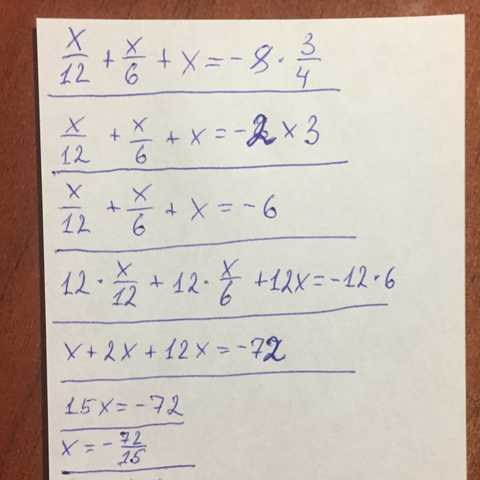 x/12 + x/6 + x = -8 · 3/4
x/12 + x/6 + x = -2 × 3
x/12 + x/6 + x = -6
12 · x/12 + 12 · x/6 + 12x = -12 · 6
x + 2x + 12x = -72
15x = -72
x = - 72/15